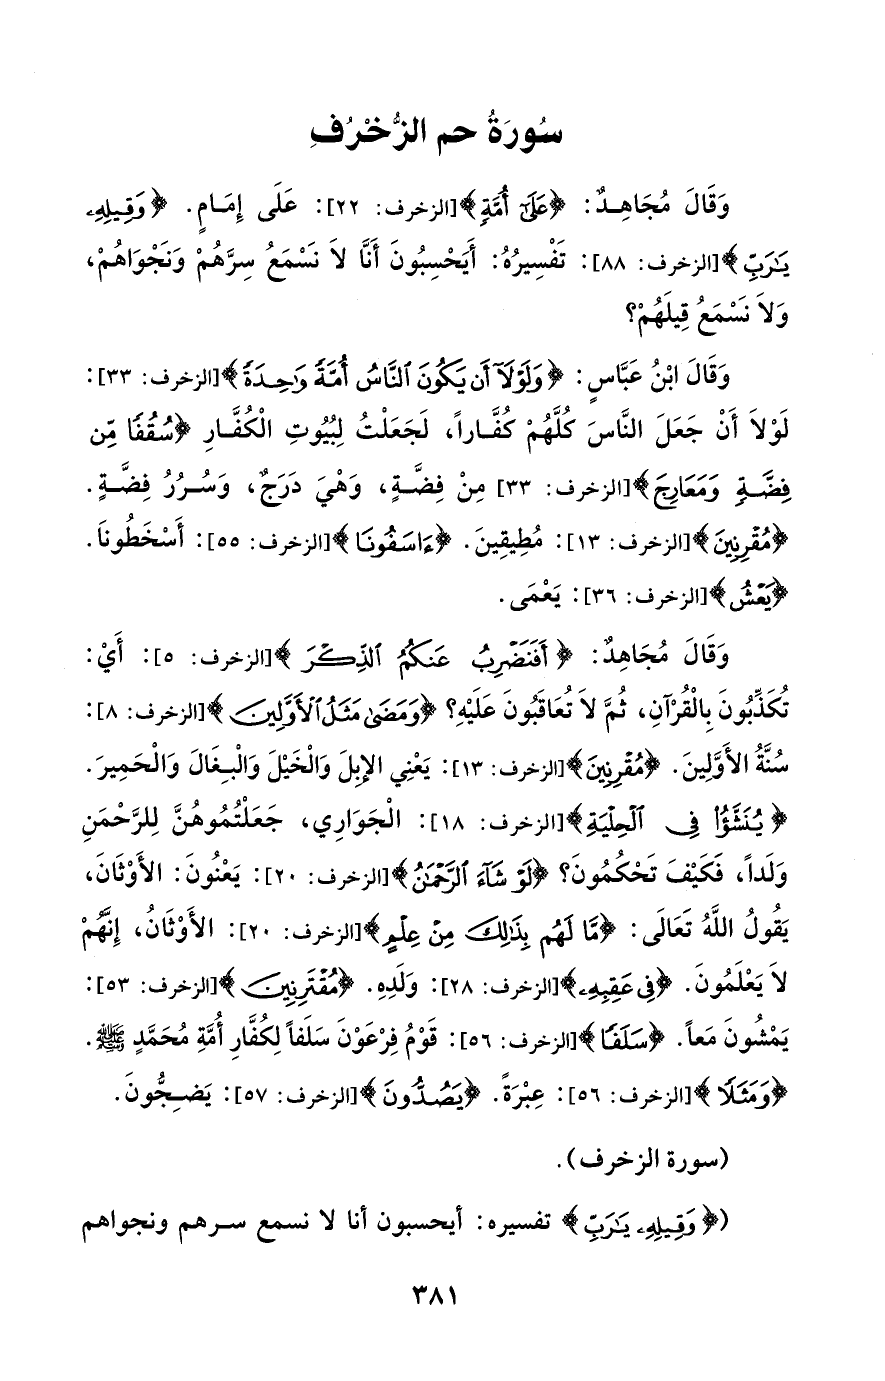 سُورَةُ حم الزُّخْرُفِ
وَقَالَ مُجَاهِدٌ: ﴿عَلَىٰٓ أُمَّةٍ﴾[الزخرف: ٢٢]: عَلَى إِمَامٍ. ﴿وَقِيلِهِۦ
يَٰرَبِّ﴾[الزخرف: ٨٨]: تَفْسِيرُهُ: أَيَحْسِبُونَ أَنَّا لاَ نَسْمَعُ سِرَّهُمْ وَنَجْوَاهُمْ،
وَلاَ نَسْمَعُ قِيلَهُمْ؟
وَقَالَ ابْنُ عَبَّاسٍ: ﴿وَلَوْلَآ أَن يَكُونَ ٱلنَّاسُ أُمَّةً وَٰحِدَةً﴾[الزخرف: ٣٣]:
لَوْلاَ أَنْ جَعَلَ النَّاسَ كُلَّهُمْ كُفَّاراً، لَجَعَلْتُ لِبُيُوتِ الْكُفَّارِ ﴿سُقُفًا مِّن
فِضَّةٍ وَمَعَارِجَ﴾[الزخرف: ٣٣] مِنْ فِضَّةٍ، وَهْيَ دَرَجٌ، وَسُرُرُ فِضَّةٍ.
﴿مُقْرِنِينَ﴾[الزخرف: ١٣]: مُطِيقِينَ. ﴿ءَاسَفُونَا﴾[الزخرف: ٥٥]: أَسْخَطُونَا.
﴿يَعْشُ﴾[الزخرف: ٣٦]: يَعْمَى.
وَقَالَ مُجَاهِدٌ: ﴿أَفَنَضْرِبُ عَنكُمُ ٱلذِّكْرَ﴾[الزخرف: ٥]: أَيْ:
تُكَذِّبُونَ بِالْقُرْآنِ، ثُمَّ لاَ تُعَاقَبُونَ عَلَيْهِ؟ ﴿وَمَضَىٰ مَثَلُ ٱلْأَوَّلِينَ﴾[الزخرف: ٨]:
سُنَّةُ الأَوَّلِينَ. ﴿مُقْرِنِينَ﴾[الزخرف: ١٣]: يَعْنِي الإِبِلَ وَالْخَيْلَ وَالْبِغَالَ وَالْحَمِيرَ.
﴿يُنَشَّؤُا۟ فِى ٱلْحِلْيَةِ﴾[الزخرف: ١٨]: الْجَوَارِي، جَعَلْتُمُوهُنَّ لِلرَّحْمَنِ
وَلَداً، فَكَيْفَ تَحْكُمُونَ؟ ﴿لَوْ شَآءَ ٱلرَّحْمَٰنُ﴾[الزخرف: ٢٠]: يَعْنُونَ: الأَوْثَانَ،
يَقُولُ اللَّهُ تَعَالَى: ﴿مَّا لَهُم بِذَٰلِكَ مِنْ عِلْمٍ﴾[الزخرف: ٢٠]: الأَوْثَانُ، إِنَّهُمْ
لاَ يَعْلَمُونَ. ﴿فِى عَقِبِهِۦ﴾[الزخرف: ٢٨]: وَلَدِهِ. ﴿مُقْتَرِنِينَ﴾[الزخرف: ٥٣]:
يَمْشُونَ مَعاً. ﴿سَلَفًا﴾[الزخرف: ٥٦]: قَوْمُ فِرْعَوْنَ سَلَفاً لِكُفَّارِ أُمَّةِ مُحَمَّدٍ ﷺ.
﴿وَمَثَلًا﴾[الزخرف: ٥٦]: عِبْرَةً. ﴿يَصُدُّونَ﴾[الزخرف: ٥٧]: يَضِجُّونَ.
(سورة الزخرف).
(﴿وَقِيلِهِۦ يَٰرَبِّ﴾ تفسيره: أيحسبون أنا لا نسمع سرهم ونجواهم
٣٨١